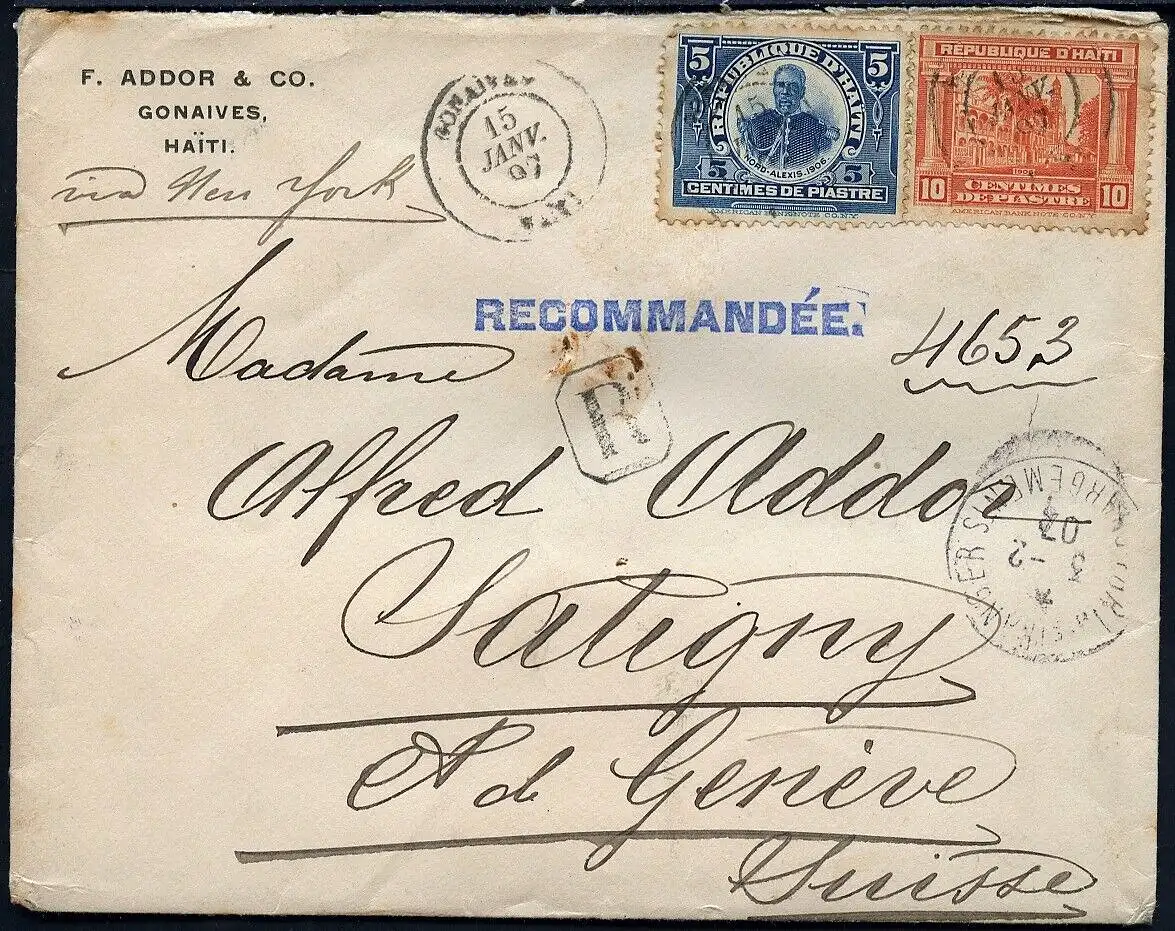 F. ADDOR & CO.
GONAIVES,
HAÏTI.
via New York
GONAIVES
15
JANV.
07
HAITI
5 5
RÉPUBLIQUE D'HAÏTI
NORD-ALEXIS.1906
5 5
CENTIMES DE PIASTRE
AMERICAN BANK NOTE CO. N.Y.
RÉPUBLIQUE D'HAÏTI
JANV.
07
1906
10 CENTIMES DE PIASTRE 10
AMERICAN BANK NOTE CO. N.Y.
RECOMMANDÉE.
4653
R
Madame
Alfred Addor
3 -2
07
Satigny
Ct de Genève
Suisse